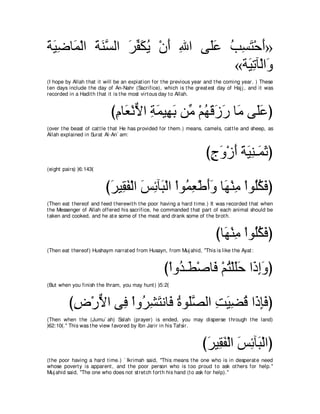 «أَحْتَسِبُ عَلَى اللهِ أَنْ يُكَفِّرَ السَّنَةَ الْمَاضِيَةَ
وَالْآتِيَة»
(I hope by Allah that it will be an expiation for the previous year and the coming year. ) These ten days include the day of An-Nahr (Sacrifice), which is the greatest day of Hajj, and it was recorded in a Hadith that it is the most virtuous day to Allah.
(عَلَى مَا رَزَقَهُمْ مِّن بَهِيمَةِ الاٌّنْعَامِ)
(over the beast of cattle that He has provided for them.) means, camels, cattle and sheep, as Allah explained in Surat Al-An`am:
(ثَمَـنِيَةَ أَزْوَجٍ)
(eight pairs) )6:143(
(فَكُلُواْ مِنْهَا وَأَطْعِمُواْ الْبَآئِسَ الْفَقِيرَ)
(Then eat thereof and feed therewith the poor having a hard time.) It was recorded that when the Messenger of Allah offered his sacrifice, he commanded that part of each animal should be taken and cooked, and he ate some of the meat and drank some of the broth.
(فَكُلُواْ مِنْهَا)
(Then eat thereof) Hushaym narrated from Husayn, from Mujahid, "This is like the Ayat:
(وَإِذَا حَلَلْتُمْ فَاصْطَـدُواْ)
(But when you finish the Ihram, you may hunt) )5:2(
(فَإِذَا قُضِيَتِ الصَّلَوةُ فَانتَشِرُواْ فِى الاٌّرْضِ)
(Then when the (Jumu`ah) Salah (prayer) is ended, you may disperse through the land) )62:10(." This was the view favored by Ibn Jarir in his Tafsir.
(الْبَآئِسَ الْفَقِيرَ)
(the poor having a hard time.) `Ikrimah said, "This means the one who is in desperate need whose poverty is apparent, and the poor person who is too proud to ask others for help." Mujahid said, "The one who does not stretch forth his hand (to ask for help)."